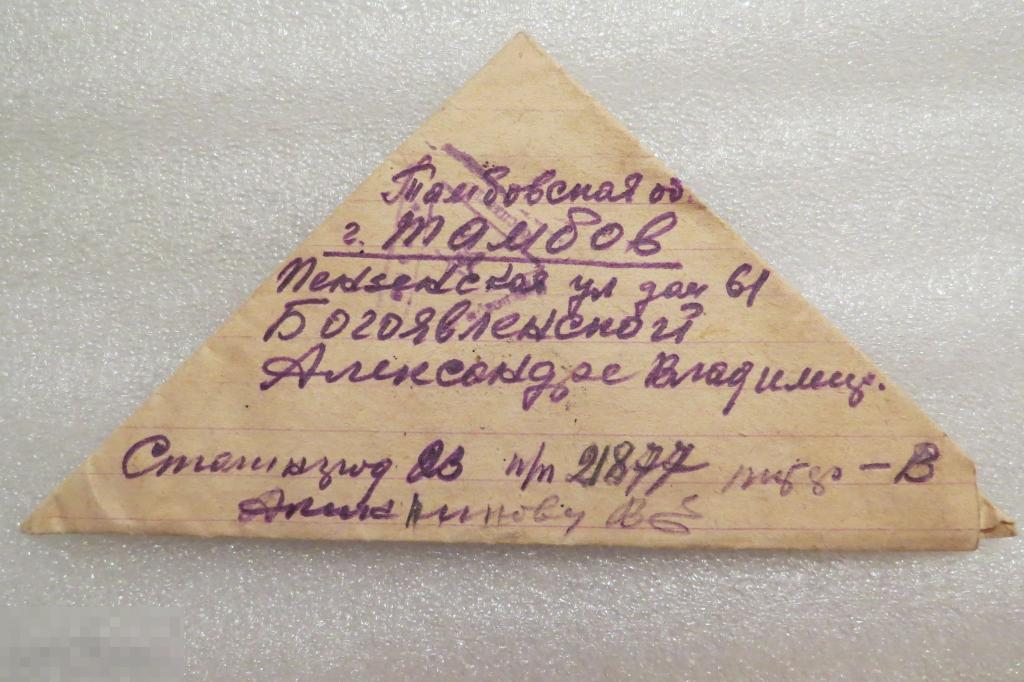 Тамбовская об
г. Тамбов
Пензенская ул дом 61
Богоявленской
Александре Владимир.
п/п 21877 – В